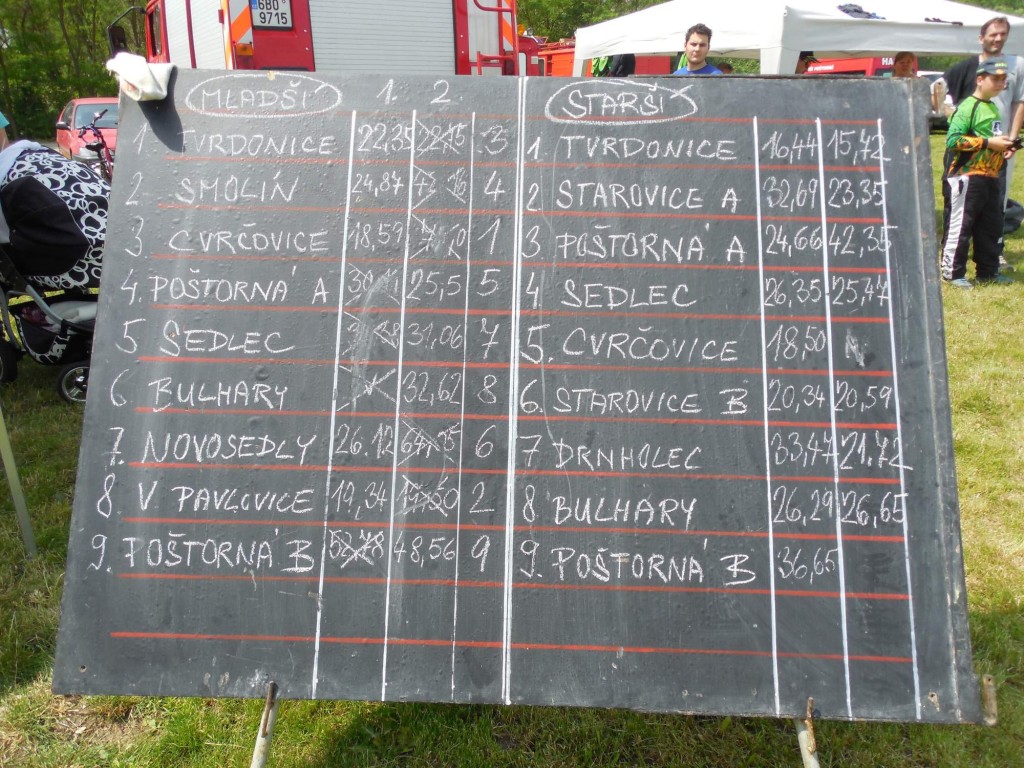 6B0
9715
HA
MLADŠÍ 1. 2.
1. TVRDONICE 22,35 3
2. SMOLÍN 24,87 4
3 CVRČOVICE 18,59 1
4. POŠTORNÁ A 25,5 5
5 SEDLEC 31,06 7
6 BULHARY 32,62 8
7. NOVOSEDLY 26.12 6
8 V PAVLOVICE 19,34 2
9. POŠTORNÁ B 52,78 48,56 9
STARŠÍ
1. TVRDONICE 16,44 15,72
2 STAROVICE A 32,69 23,35
3 POŠTORNÁ A 24,66 42,35
4 SEDLEC 26,35 25,47
5. CVRČOVICE 18,50 N
6. STAROVICE B 20,34 20,59
7 DRNHOLEC 33,47 21,72
8 BULHARY 26,29 26,65
9. POŠTORNÁ B 36,65